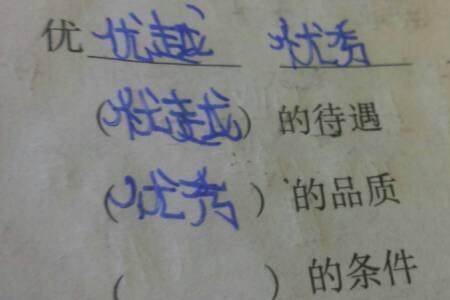 优 优越 优秀
(优越)的待遇
(优秀)的品质
( )的条件